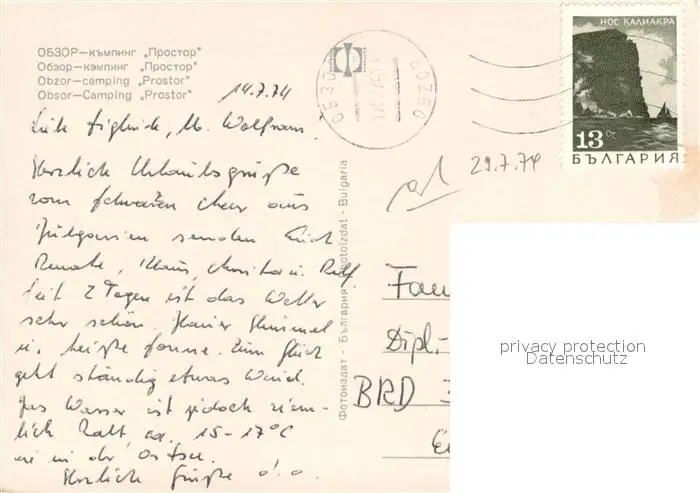 ОБЗОР—къмпинг „Простор"
Обзор—кэмпинг „Простор"
Obzor-camping „Prostor"
Obsor-Camping „Prostor"
14.7.74
НОС КАЛИАКРА
13 ст.
БЪЛГАРИЯ
ОБЗОР
OBZOR
29.7.74
Liebe Sieglinde, lb. Wolfram,
Herzliche Urlaubsgrüße
vom schwarzen Meer aus
Bulgarien senden Euch
Renate, Klaus, Monika u. Ralf.
Seit 2 Tagen ist das Wetter
sehr schön, blauer Himmel
u. heiße Sonne. Zum Glück
geht ständig etwas Wind.
Das Wasser ist jedoch ziem-
lich kalt, ca. 15-17°C
wie in der Ostsee.
Herzliche Grüße
Фотоиздат - България Fotoizdat - Bulgaria
Fam
Dipl.-
BRD 3
privacy protection
Datenschutz